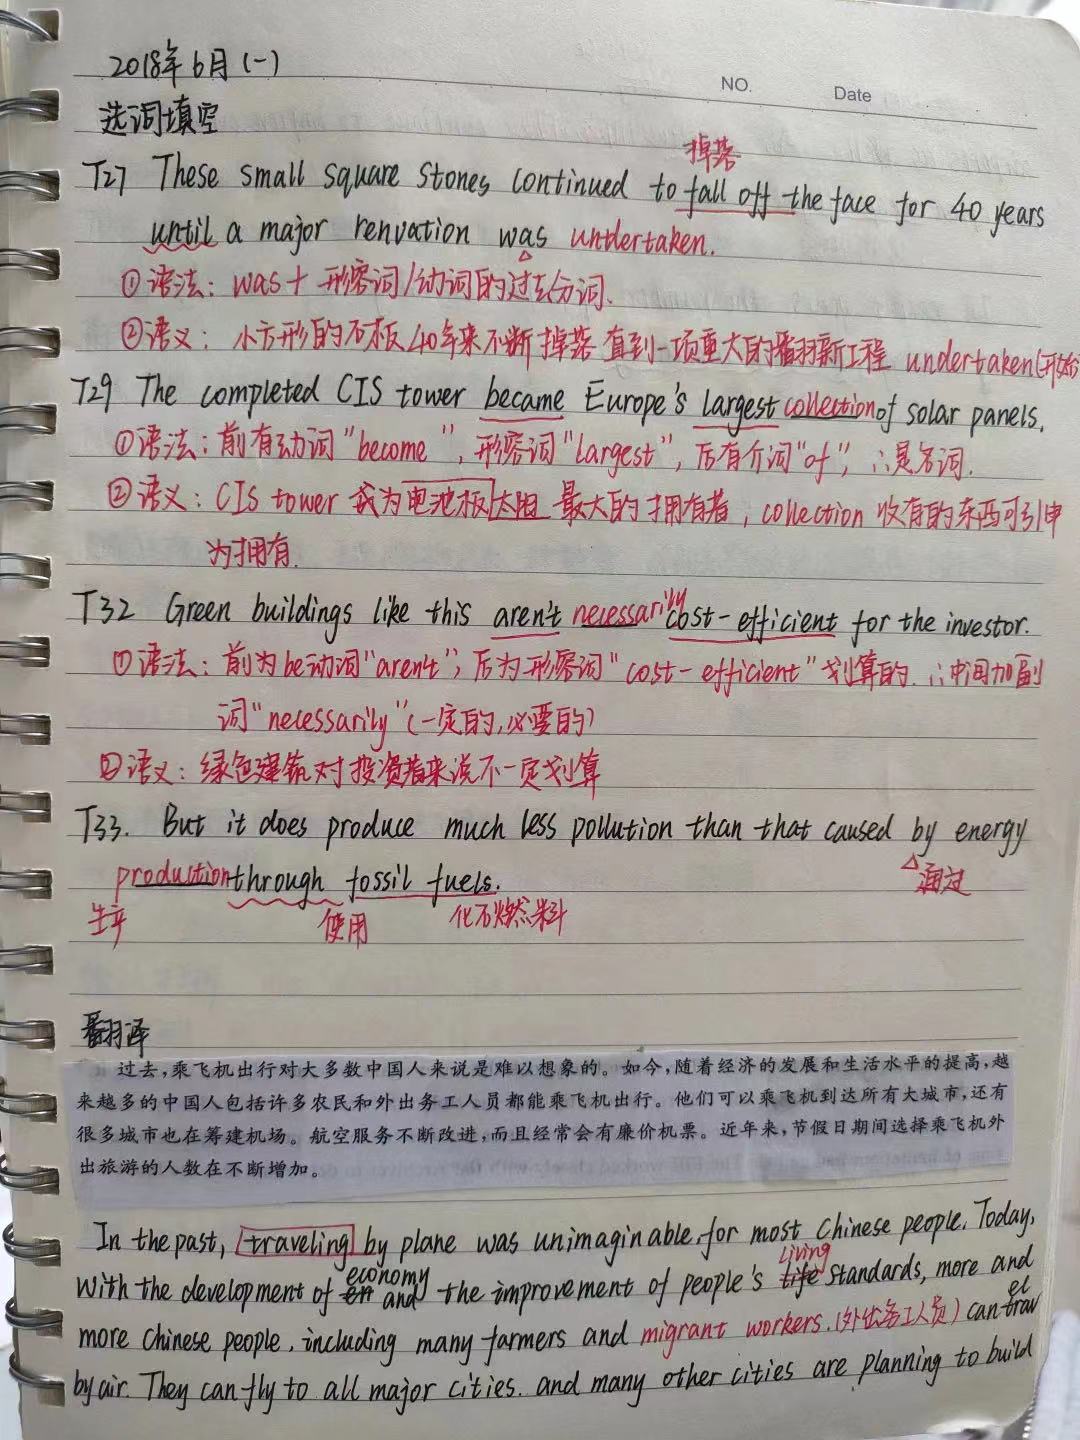 2018年6月(一)
NO. Date
选词填空
掉落
T27 These small square stones continued to fall off the face for 40 years
until a major renvation was undertaken.
①语法：was+形容词/动词的过去分词.
②语义：小方形的石板40年来不断掉落 直到一项重大的翻新工程 undertaken(开始
T29 The completed CIS tower became Europe's largest collection of solar panels.
①语法：前有动词"become", 形容词"largest", 后有介词"of", ∴是名词.
②语义：CIS tower 成为电池板太阳 最大的拥有者, collection 收有的东西可引申
为拥有.
T32 Green buildings like this aren't necessarily cost-efficient for the investor.
①语法：前为be动词"aren't"; 后为形容词"cost-efficient"划算的. ∴中间加副
词"necessarily"(一定的,必要的)
②语义：绿色建筑对投资者来说不一定划算
T33. But it does produce much less pollution than that caused by energy
通过
production through fossil fuels.
生产 使用 化石燃料
翻译
过去,乘飞机出行对大多数中国人来说是难以想象的。如今,随着经济的发展和生活水平的提高,越
来越多的中国人包括许多农民和外出务工人员都能乘飞机出行。他们可以乘飞机到达所有大城市,还有
很多城市也在筹建机场。航空服务不断改进,而且经常会有廉价机票。近年来,节假日期间选择乘飞机外
出旅游的人数在不断增加。
In the past, traveling by plane was unimaginable for most Chinese people. Today,
with the development of economy and the improvement of people's living standards, more and
more Chinese people, including many farmers and migrant workers.(外出务工人员) can travel
by air. They can fly to all major cities. and many other cities are planning to build